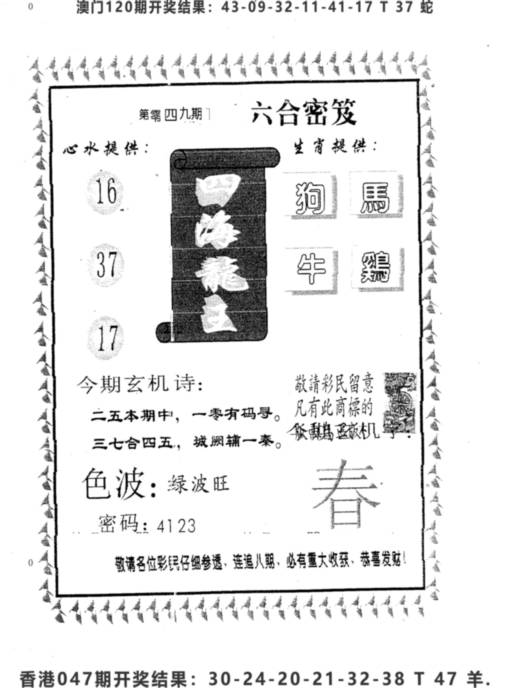 澳门120期开奖结果：43-09-32-11-41-17 T 37 蛇
第零四九期
六合密笈
心水提供：
生肖提供：
16
37
17
四海龍王
狗
馬
牛
鷄
今期玄机诗：
二五本期中，一零有码寻。
三七合四五，城阙辅一秦。
敬請彩民留意
凡有此商標的
色波：绿波旺
密码：4123
春
敬请各位彩民仔细参透、连追八期、必有重大收获、恭喜发财！
香港047期开奖结果：30-24-20-21-32-38 T 47 羊.